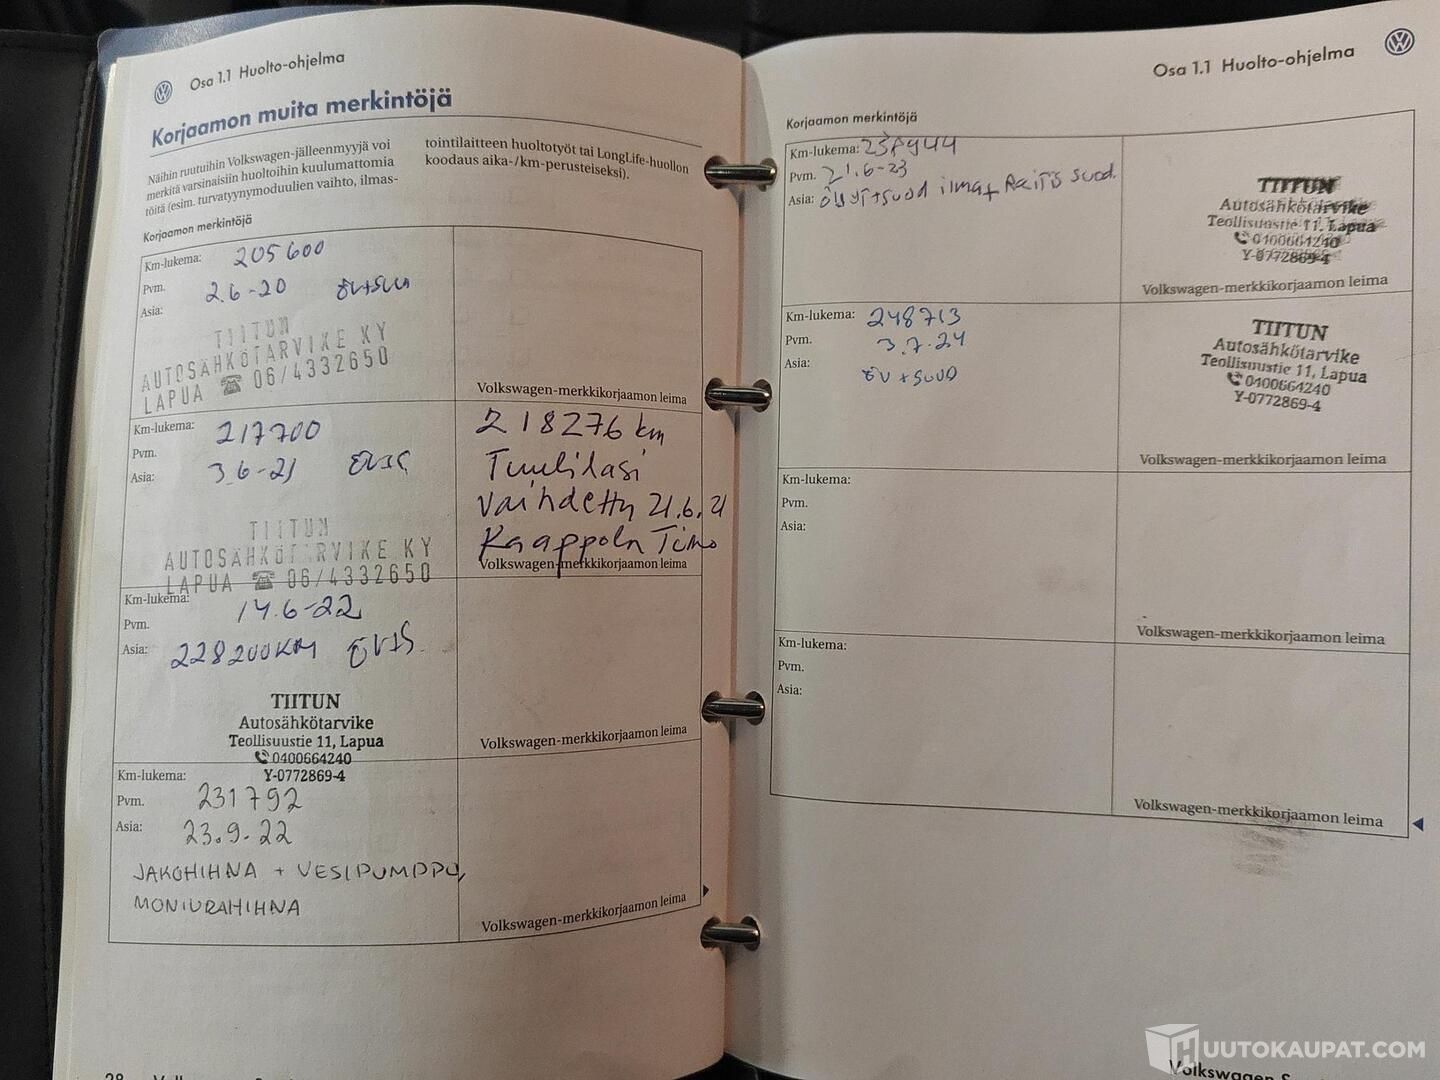 Osa 1.1 Huolto-ohjelma
Korjaamon muita merkintöjä
Näihin ruutuihin Volkswagen-jälleenmyyjä voi
merkitä varsinaisiin huoltoihin kuulumattomia
töitä (esim. turvatyynymoduulien vaihto, ilmas-
tointilaitteen huoltotyöt tai LongLife-huollon
koodaus aika-/km-perusteiseksi).
Korjaamon merkintöjä
Km-lukema: 205600
Pvm. 2.6-20
Asia:
TIITUN
AUTOSÄHKÖTARVIKE KY
LAPUA ☎ 06/4332650
Volkswagen-merkkikorjaamon leima
Km-lukema: 217700
Pvm.
Asia: 3.6-21
TIITUN
AUTOSÄHKÖTARVIKE KY
LAPUA ☎ 06/4332650
218276 km
Tuulilasi
vaihdettu 21.6.21
Kaappola Timo
Volkswagen-merkkikorjaamon leima
Km-lukema:
Pvm. 14.6-22
Asia: 228200KM
TIITUN
Autosähkötarvike
Teollisuustie 11, Lapua
0400664240
Y-0772869-4
Volkswagen-merkkikorjaamon leima
Km-lukema:
Pvm. 231792
Asia: 23.9.22
JAKOHIHNA + VESIPUMPPU,
MONIURAHIHNA
Volkswagen-merkkikorjaamon leima
Osa 1.1 Huolto-ohjelma
Korjaamon merkintöjä
Km-lukema:
Pvm. 21.6-23
Asia: suod ilma+ Raitis suod.
TIITUN
Autosähkötarvike
Teollisuustie 11, Lapua
0400664240
Y-0772869-4
Volkswagen-merkkikorjaamon leima
Km-lukema: 248713
Pvm. 3.7.24
Asia: öv + suod
TIITUN
Autosähkötarvike
Teollisuustie 11, Lapua
0400664240
Y-0772869-4
Volkswagen-merkkikorjaamon leima
Km-lukema:
Pvm.
Asia:
Volkswagen-merkkikorjaamon leima
Km-lukema:
Pvm.
Asia:
Volkswagen-merkkikorjaamon leima
HUUTOKAUPAT.COM